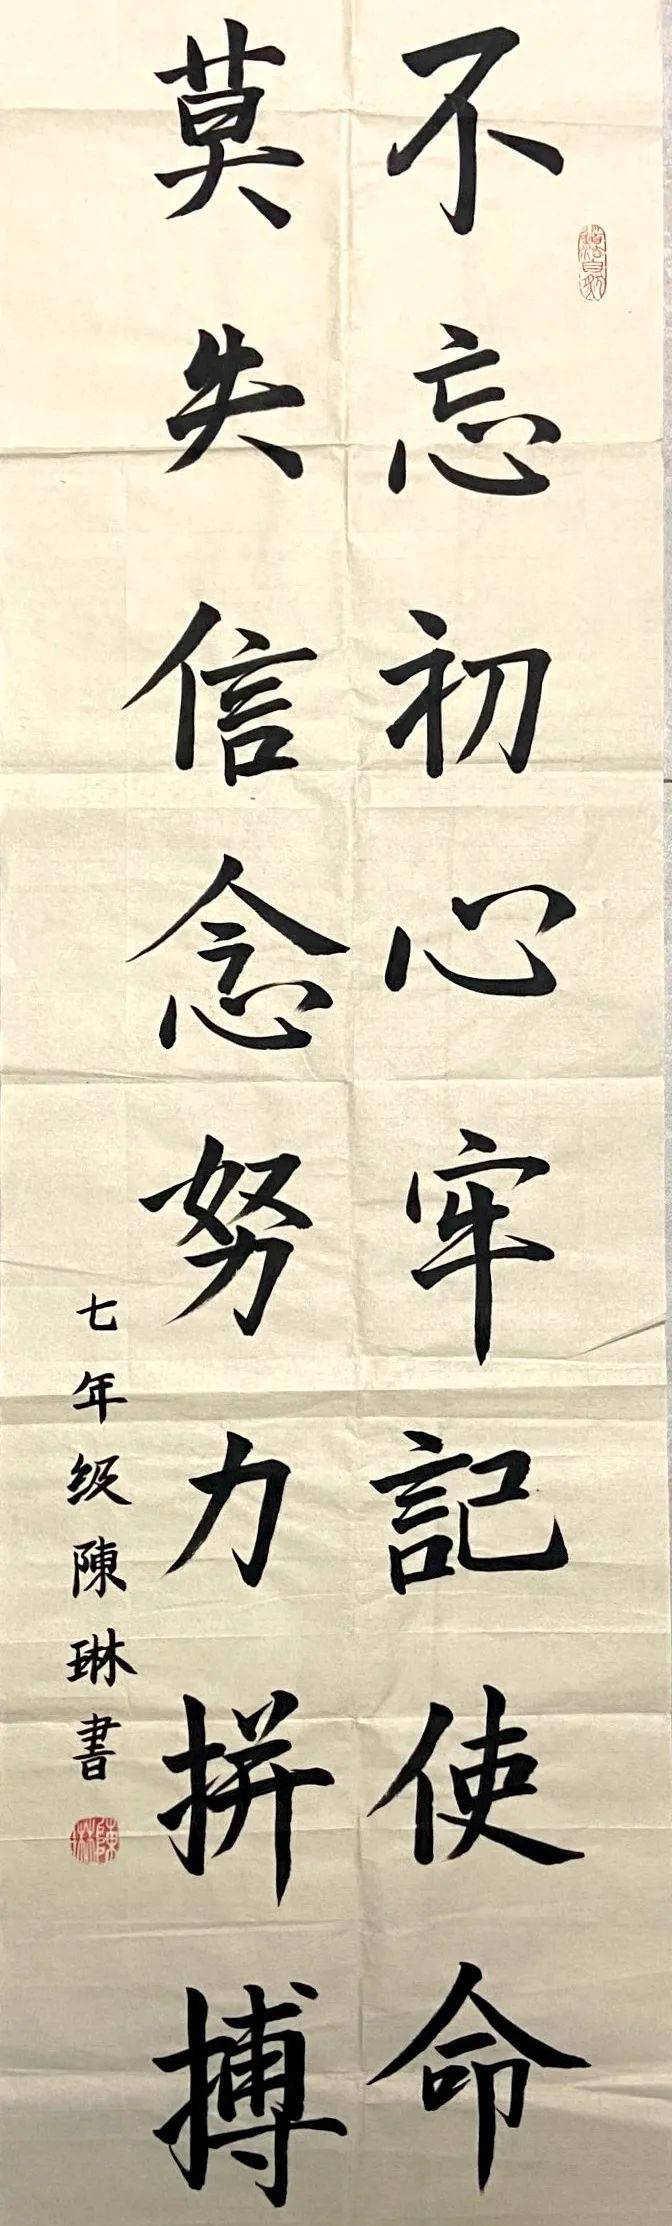 不忘初心牢記使命
莫失信念努力拼搏
七年级陳琳書
陳琳